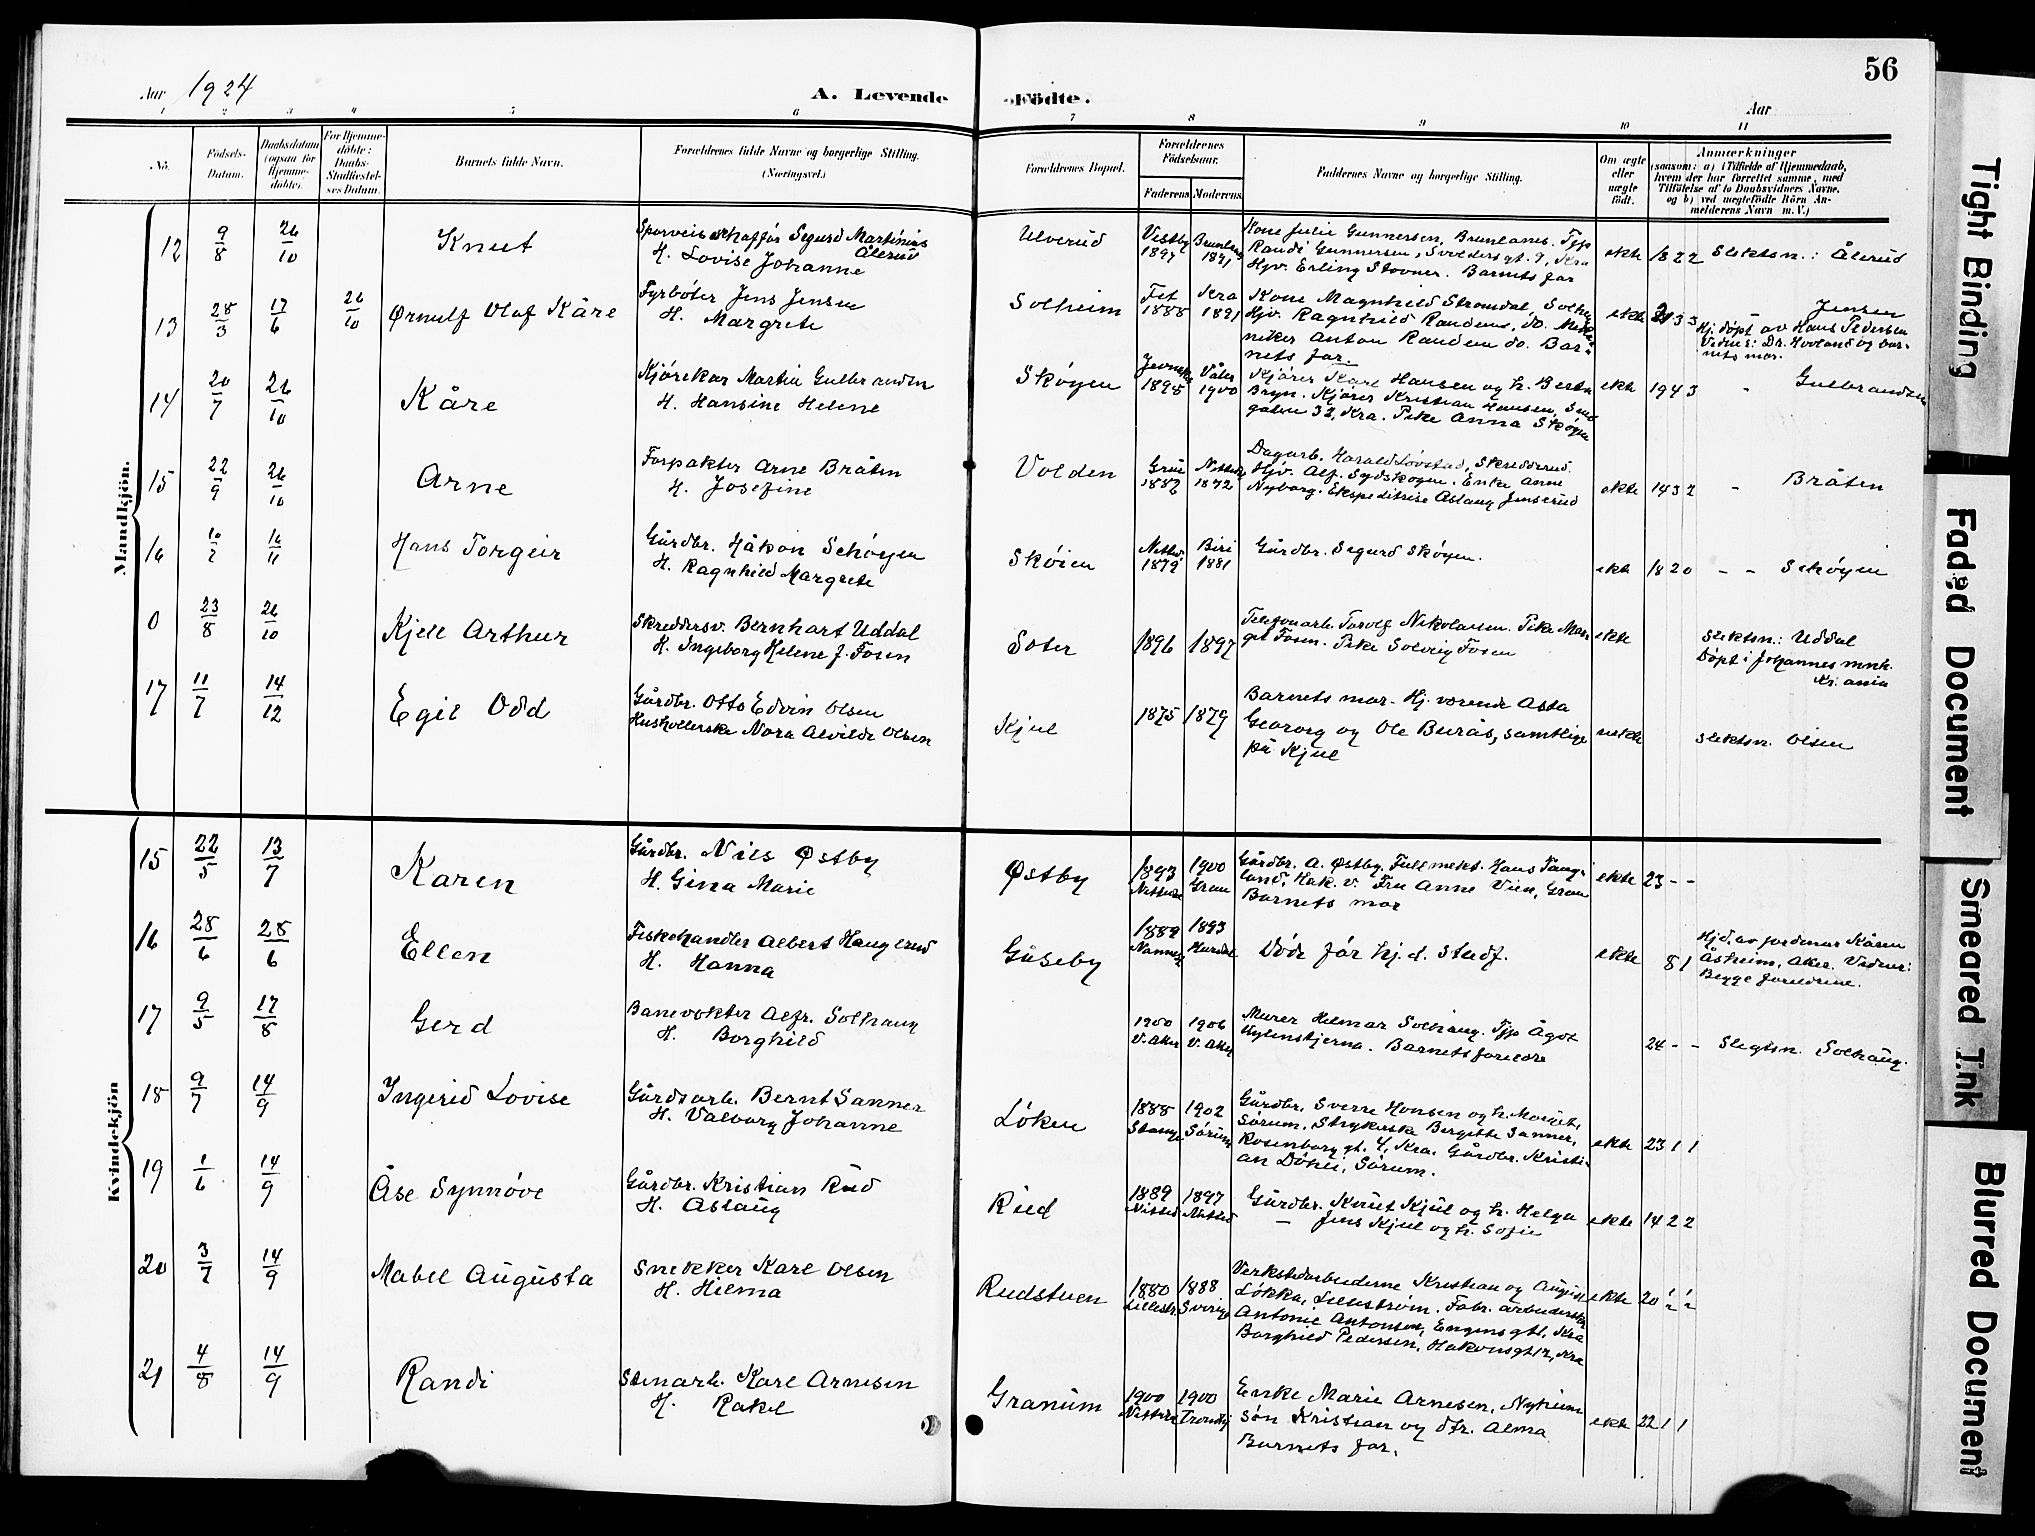 56
Aar 1924
A. Levende
Födte.
Aar
1 2 3 4 5 6 7 8 9 10 11
No.
Födsels-
Datum.
Daabsdatum
(ogsaa for
Hjemme-
döbte).
For Hjemme-
döbte:
Daabs-
Stadfæstel-
ses Datum.
Barnets fulde Navn.
Forældrenes fulde Navne og borgerlige Stilling.
(Næringsvei.)
Forældrenes Bopæl.
Forældrenes
Födselsaar.
Faderens Moderens
Faddernes Navne og borgerlige Stilling.
Om ægte
eller
uægte
født.
Anmærkninger
(saasom: a) i Tilfælde af Hjemmedaab,
hvem der har forrettet samme, med
Tilföielse af to Daabsvidners Navne.
og b) ved uægtefödte Börn An-
melderens Navn m. V.)
Mandkjön.
12 9/8 26/10 Knut
Sporveischaffør Sigurd Martinius
Ålerud
H. Lovise Johanne
Ulverud
Vestby 1897
1891
Kone Julie Gunnersen, Brunlanes. Tjp
Randi Gunnersen, Svoldersgt. 9, Kra
Hjv. Erling Stovner. Barnets far
ekte 18 2 2 Slektsn.: Ålerud
13 28/3 17/6 26/10 Ørnulf Olaf Kåre
Fyrbøter Jens Jensen
H. Margrete
Solheim
Fet 1888
Kra 1891
Kone Magnhild Stromdal, Solheim
Hjv. Ragnhild Randem, do. Mek-
niker Anton Randem do. Bar-
nets far.
ekte 21 3 3 - Jensen
Hj. døpt av Hans Pedersen
Vidner: Dr. Hovland og bar-
nets mor.
14 20/7 26/10 Kåre
Kjørekar Martin Gulbrandsen
H. Hansine Helene
Skøyen
Jevnaker 1895
Våler 1900
Kjører Karl Hansen og h. Berta
Bryn. Kjører Kristian Hansen,
gaten 32, Kra. Pike Anna Skøyen
ekte 19 4 3 " Gulbrandsen
15 22/9 26/10 Arne
Forpakter Arne Bråten
H. Josefine
Volden
Grue 1882
1872
Dagarb. Harald Løvstad, Skredderud.
Hjv. Alf. Sydskogen. Enke Anne
Nyborg. Ekspeditrise Aslaug Jenserud
ekte 14 3 2 - Bråten
16 10/7 16/11 Hans Torgeir
Gårdbr. Håkon Schøyen
H. Ragnhild Margrete
Skøien
1879
Biri 1881
Gårdbr. Sigurd Skøyen.
ekte 18 2 0 - - Schøyen
0 23/8 26/10 Kjell Arthur
Skreddersv. Bernhart Uddal
H. Ingeborg Helene J. Fosen
Soter
1896 1897
Telefonarb. Torolf Nikolaisen. Pike Mar-
git Fosen. Pike Solveig Fosen
ekte
Slektsn.: Uddal
Døpt i Johannes mnh.
Kr.ania
17 11/7 14/12 Egil Odd
Gårdbr. Otto Edvin Olsen
Husholderske Nora Alvilde Olsen
Kjul
1875 1879
Barnets mor. Hj. værende Asta
Georg og Ole Burås, samtlige
på Kjul
uekte
Slektsn. Olsen
Kvindekjön
15 22/5 13/7 Karen
Gårdbr. Nils Østby
H. Gina Marie
Østby
1893
1900 Gran
Gårdbr. A. Østby. Fullmekt. Hans Tange-
land, Hak. V. Fru Anne Vien, Gran
Barnets mor
ekte 23 - -
16 28/6 28/6 Ellen
Fiskehandler Albert Haugerud
H. Hanna
Gåseby
1889 Nannest
1893 Hurdal
Døde før hj.d. stadf.
ekte 8 1
Hjd. av jordmor Kåren
Åsheim, Aker. Vidner:
Begge foreldrene.
17 9/5 17/8 Gerd
Banevokter Alfr. Solhaug
H. Borghild
1900 V. Aker
1906 V. Aker
Murer Hilmar Solhaug. Tjp Ågot
Gylenstjerna. Barnets foreldre
24 - - Slegtsn. Solhaug.
18 9/7 14/9 Ingerid Lovise
Gårdsarb. Bernt Sanner
H. Valborg Johanne
Løken
1888 Stange
1902 Sørum
Gårdbr. Sverre Hansen og h. Margit,
Sørum. Strykerske Bergitte Sanner,
Rosenborggt. 4, Kra. Gårdbr. Kristi-
an Døhli, Sørum.
ekte 23 1 1
19 1/6 14/9 Åse Synnøve
Gårdbr. Kristian Rud
H. Aslaug
Rud
1889 Nitted
1897 Nitted
Gårdbr. Knut Kjul og h. Helga
- Jens Kjul og h. Sofie
ekte 14 2 2
20 3/7 14/9 Mabel Augusta
Snekker Karl Olsen
H. Hilma
Rudstuen
1880 Lillestr.
1888 Sverige
Verkstedarbeiderne Kristian og August
Løkka, Lillestrøm. Fabr. arbeiderske
Antonie Antonsen, Engensgt 1, Kra
Borghild Pedersen, Hakonsgt 12, Kra
ekte 20 ½ ½
21 4/8 14/9 Randi
Stenarb. Karl Arnesen
H. Rakel
Granum
1900
1900 Trondhj
Enke Marie Arnesen, Nyheim
Søn Kristian og dtr. Alma
Barnets far.
ekte 22 1 1
Tight Binding
Faded Document
Smeared Ink
Blurred Document